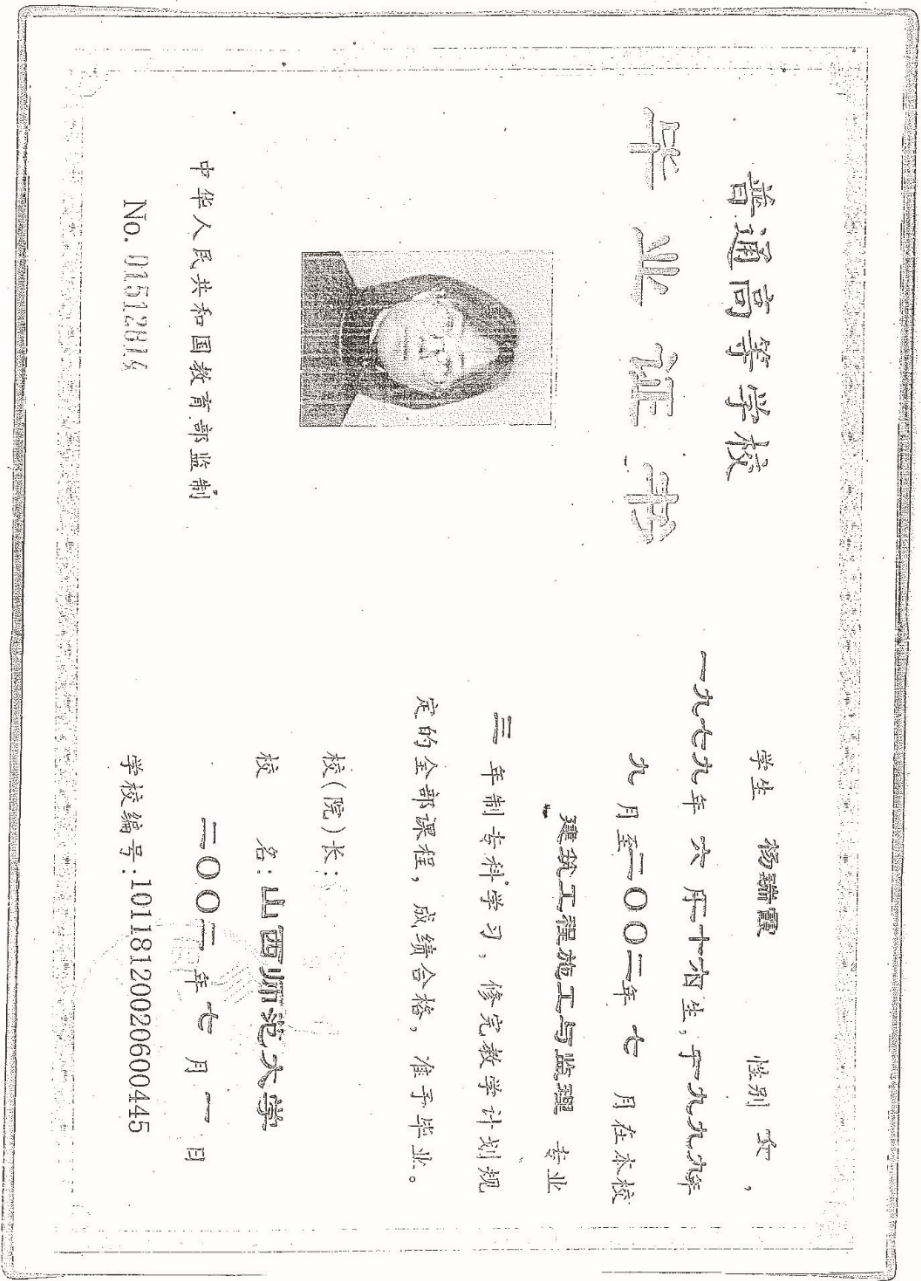 普通高等学校
毕业证书
中华人民共和国教育部监制
No. 01512814
学生 杨瑞霞 性别 女,
一九七九年 六 月二十六日生,于一九九九年
九 月至二〇〇二年 七 月在本校
建筑工程施工与监理 专业
三 年制专科学习,修完教学计划规
定的全部课程,成绩合格,准予毕业。
校(院)长:
校 名:山西师范大学
二〇〇二年 七 月 一 日
学校编号:101181200206000445